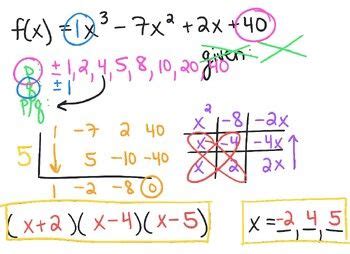 f(x) = 1x³ - 7x² + 2x + 40
given:
p: ± 1, 2, 4, 5, 8, 10, 20, 40
q: ± 1
p/q:
1 -7 2 40
5 5 -10 -40
1 -2 -8 0
x² -8 -2x
x -4 -4x
x 2 2x
(x+2)(x-4)(x-5)
x = -2, 4, 5